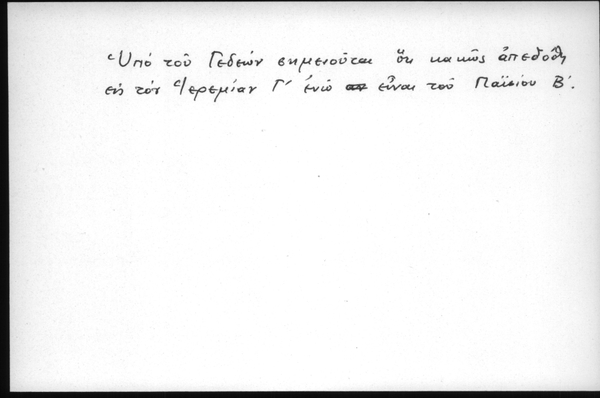 Ὑπό τοῦ Γεδεών σημειοῦται ὅτι κακῶς ἀπεδόθη
εἰς τόν Ἱερεμίαν Γ' ἐνῶ εἶναι τοῦ Παϊσίου Β'.